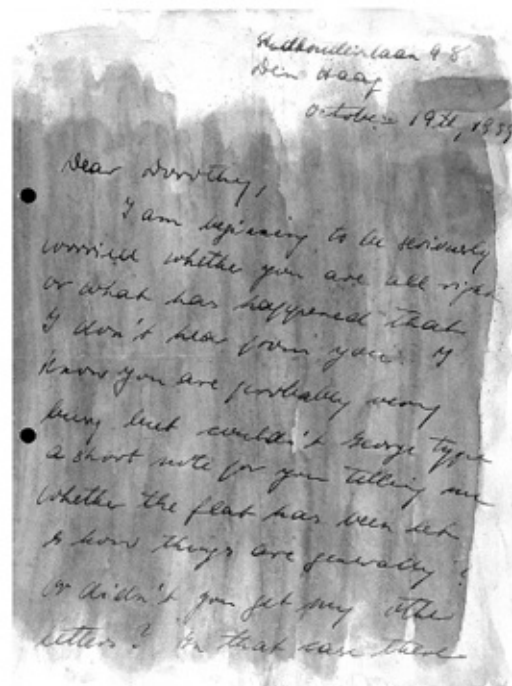 Stadhouderslaan 98
Den Haag
October 19th, 1939
Dear Dorothy,
I am beginning to be seriously
worried whether you are all right
or what has happened that
I don't hear from you. I
know you are probably very
busy but couldn't George type
a short note for you telling me
whether the flat has been let
& how things are generally?
or didn't you get my other
letters? In that case there